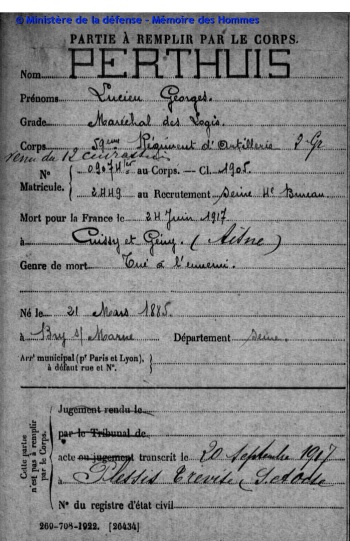 © Ministère de la défense - Mémoire des Hommes
PARTIE À REMPLIR PAR LE CORPS.
Nom PERTHUIS
Prénoms Lucien Georges.
Grade Maréchal des Logis.
Corps 59eme Régiment d'Artillerie
venu du 12 cuirassiers
N° au Corps. — Cl. 1905.
Matricule. 2449 au Recrutement Seine 4e Bureau
Mort pour la France le 24 Juin 1917
à Cuissy et Geny. (Aisne)
Genre de mort Tué à l'ennemi.
Né le 21 Mars 1885.
à Bry s/ Marne Département Seine.
Arrt municipal (pr Paris et Lyon),
à défaut rue et N°.
Cette partie n'est pas à remplir par le Corps.
Jugement rendu le
par le Tribunal de
acte ou jugement transcrit le 20 Septembre 1917
à Plessis Trevise (S. et Oise
N° du registre d'état civil
269-708-1922. [26434]